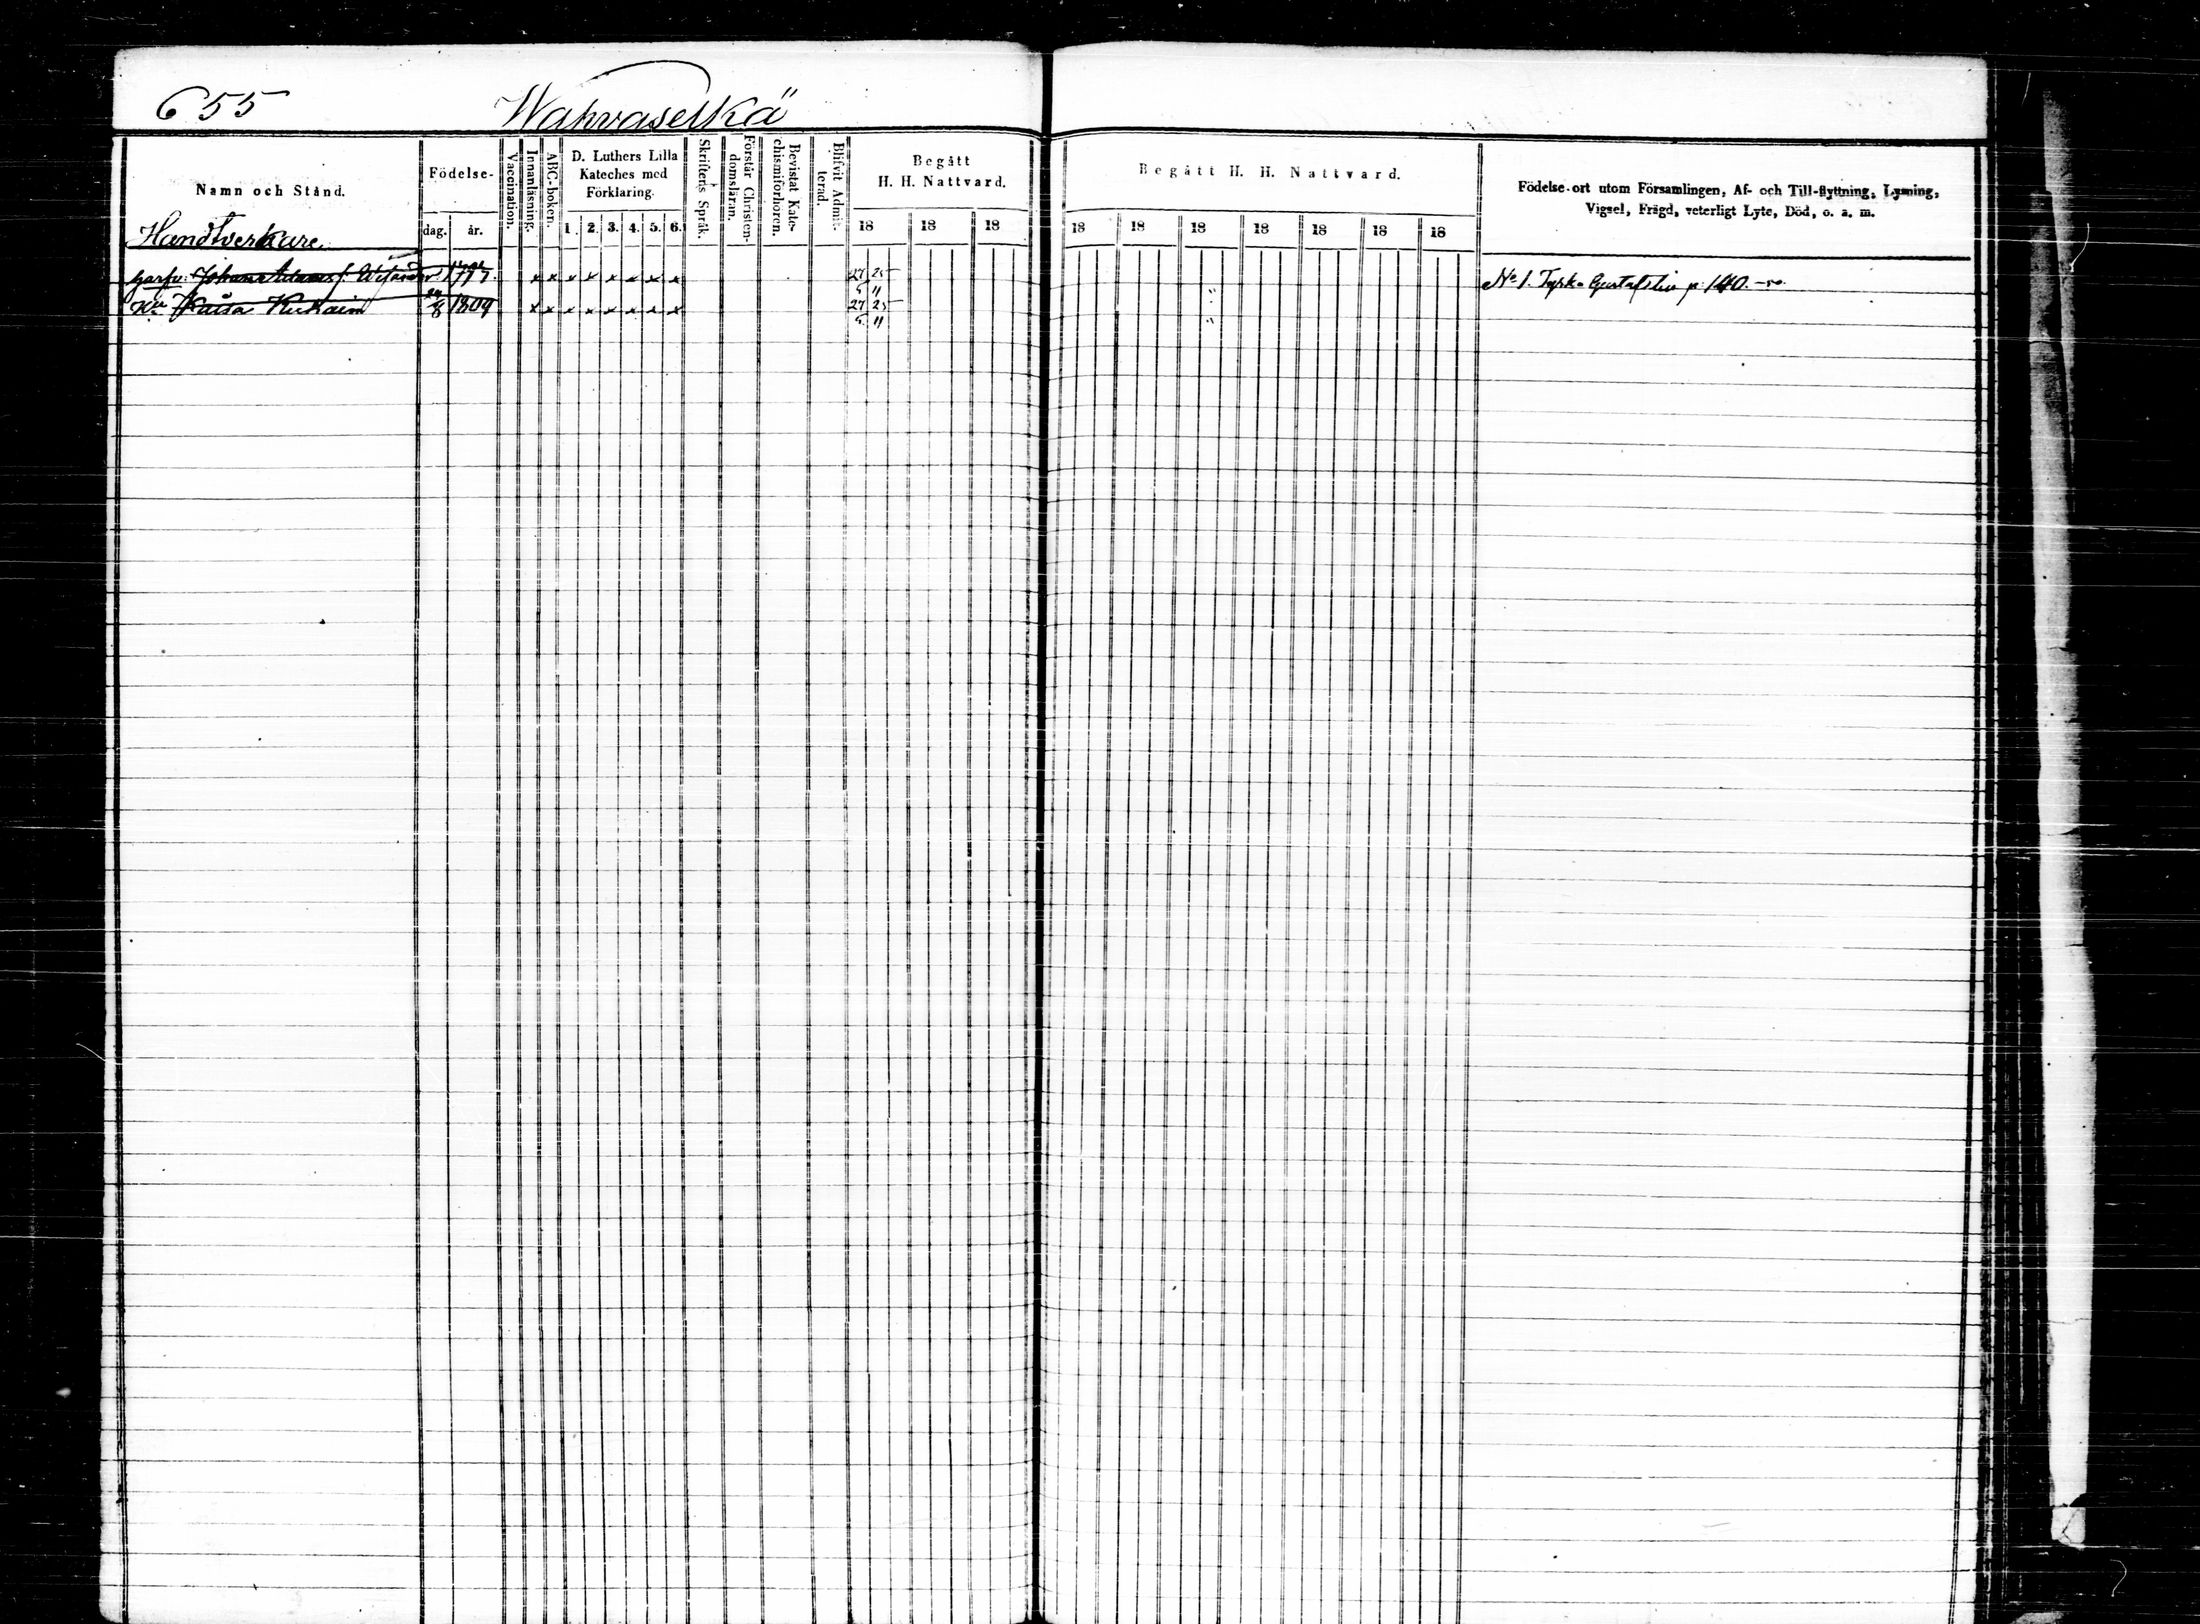 655 Wahvaselkä
Namn och Stånd.
Handtverkare
Födelse-
dag. år.
Vaccination.
Innanläsning.
ABC-boken.
D. Luthers Lilla
Kateches med
Förklaring.
1. 2. 3. 4. 5. 6.
Skriftens Språk.
Förstår Christen-
domsläran.
Bevistat Kate-
chismiförhören.
Blifvit Admit-
terad.
Begått
H. H. Nattvard.
18 18 18
Begått H. H. Nattvard.
18 18 18 18 18 18 18
Födelse-ort utom Församlingen, Af- och Till-flyttning, Lysning,
Vigsel, Frägd, veterligt Lyte, Död, o. a. m.
Garfv: Johan x x x x x x x x 27 25
5 11
No 1. p. 140.
Kaisa 8 1809 x x x x x x x x 27 25
5 11